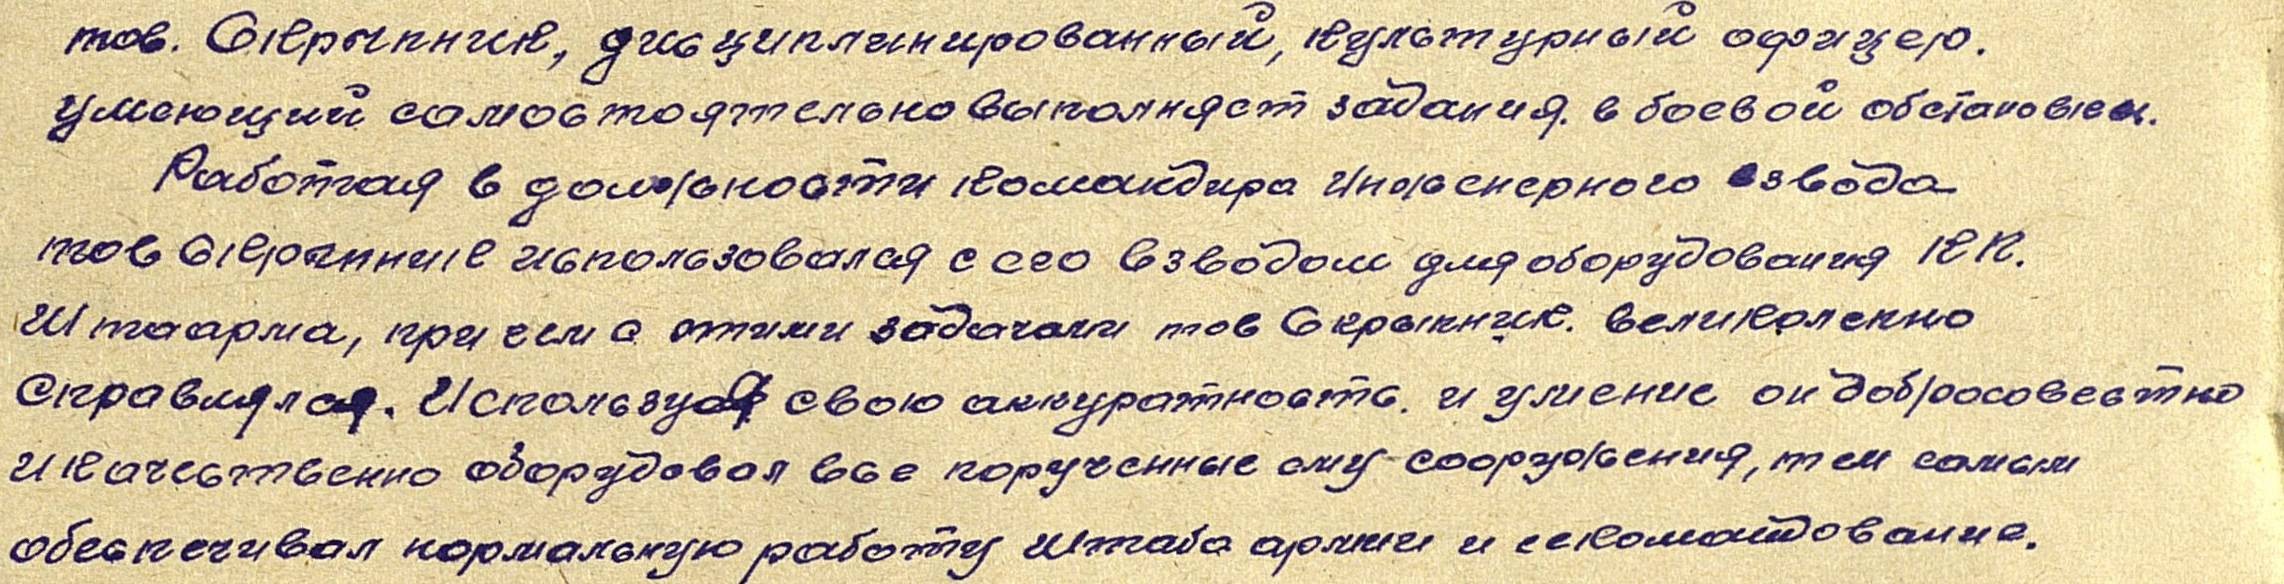 тов. Скрыпник, дисциплинированный, культурный офицер.
умеющий самостоятельно выполняет задания. в боевой обстановки.
Работая в должности командира Инженерного взвода
тов Скрыпник использовался с его взводом для оборудования КП.
Штаарма, при чем с этими задачами тов Скрыпник. великолепно
справлялся. Используя свою аккуратность. и умение он добросовестно
и качественно оборудовал все порученные ему сооружения, тем самым
обеспечивал нормальную работу Штаба армии и ее командование.